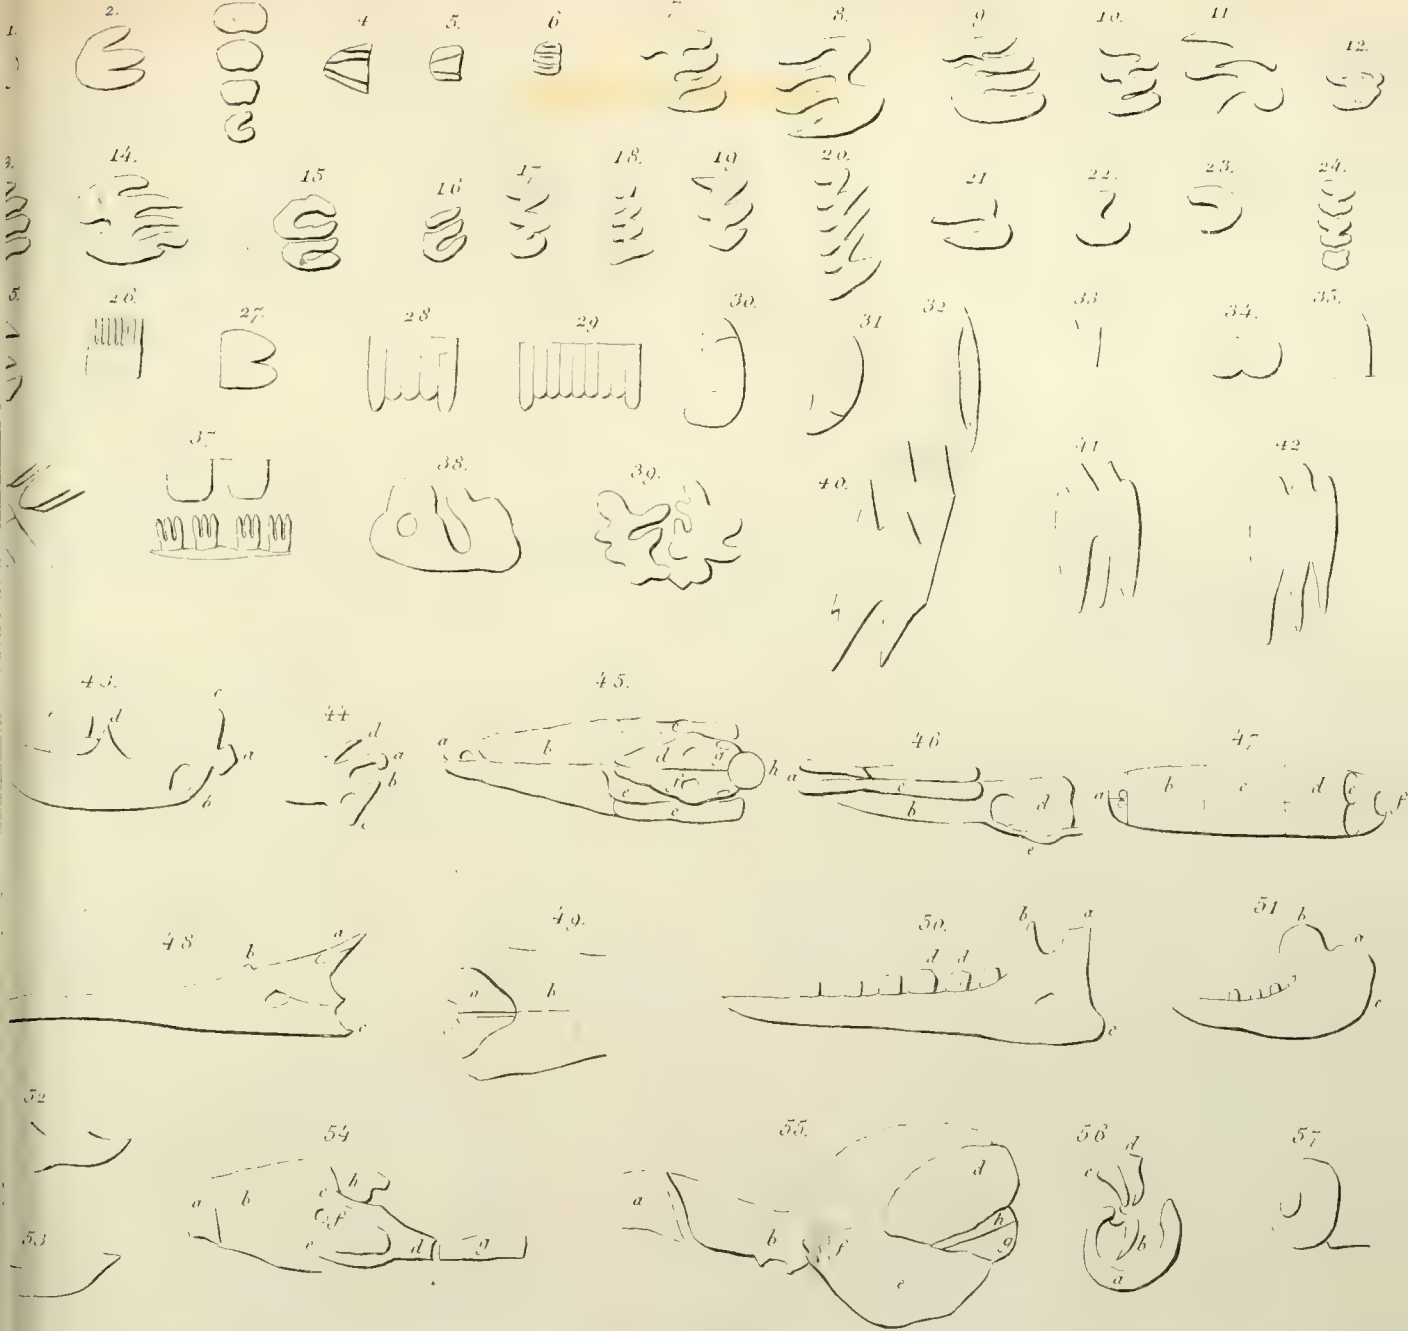 1. 2. 4 5. 6 7. 8. 9 10. 11 12.
14. 15 16 17 18. 19 20. 21 22. 23. 24.
5. 26. 27. 28 29 30. 31 32 33 34. 35.
37 38. 39. 40. 41 42
43. d c a b
44 d a b c
45. a b c d g h e c e
46 a c b d e
47 a b c d e f
48 b a c e
49. a b
50. d d b a c
51 b a c
52
53
54 a b c h f e d g
55. a b f d h g e
56 c d b a
57